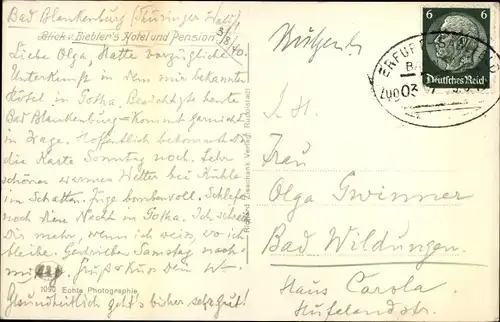 Bad Blankenburg (Thüringer Wald)
Blick v. Biebler's Hotel und Pension
3/8 40.
Liebe Olga, Hatte vorzügliche
Unterkunft in dem mir bekannten
Hotel in Gotha. Besichtigte heute
Bad Blankenburg = kommt garnicht
in Frage. Hoffentlich bekommst Du
die Karte Sonntag noch. Sehr
schönes warmes Wetter bei Kühle
im Schatten. Züge bombenvoll. Schlafe
noch eine Nacht in Gotha. Ich schreibe
Dir mehr, wenn ich weiss, wo ich
bleibe. Samstag nach-
mittag. Gruß + Kuss Dein W
Gesundheitlich geht's bisher sehr gut!
1050 Echte Photographie
Verlag, Rudolstadt
6 6
Deutsches Reich
ERFURT
Zug 03
Frau
Olga Gwinner
Bad Wildungen
Haus Carola
Hufelandstr.